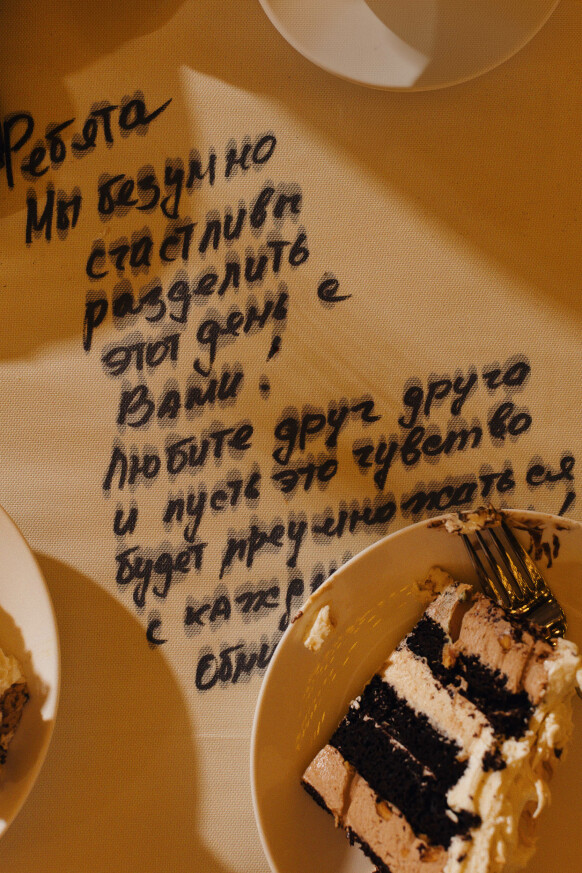 Ребята
Мы безумно
счастливы
разделить
этот день с
Вами!
Любите друг друга
и пусть это чувство
будет преумножаться
с кажд
Обни